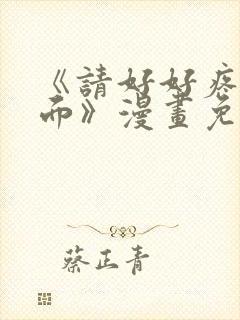 《請好好疼
而》漫畫免
蔡正青